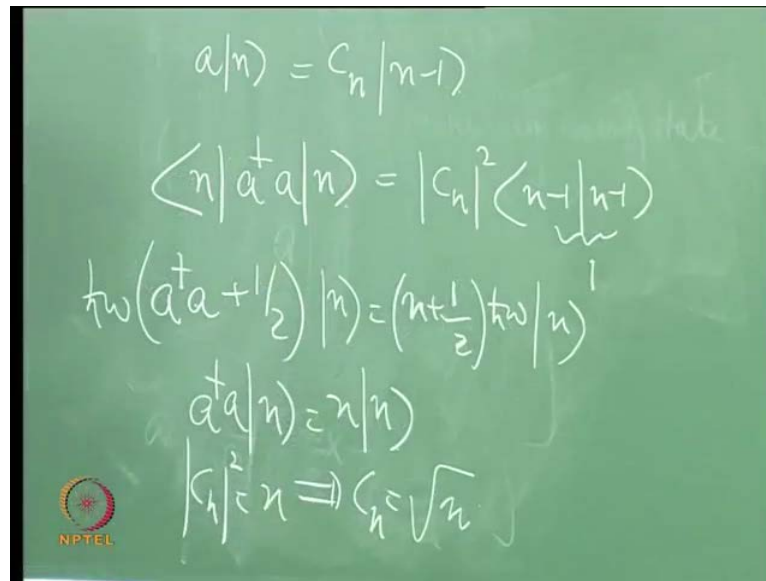 a|n⟩ = Cₙ|n-1⟩
⟨n|a†a|n⟩ = |Cₙ|²⟨n-1|n-1⟩
1
ħω(a†a + 1/2)|n⟩ = (n + 1/2)ħω|n⟩
a†a|n⟩ = n|n⟩
|Cₙ|² = n ⟹ Cₙ = √n
NPTEL